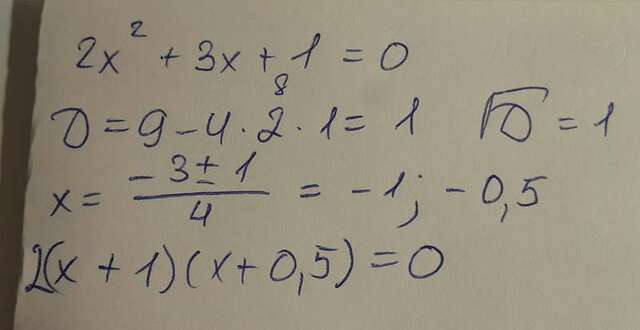 2x² + 3x + 1 = 0
8
D = 9 - 4 · 2 · 1 = 1 √D = 1
x = (-3 ± 1)/4 = -1; -0,5
2(x + 1)(x + 0,5) = 0